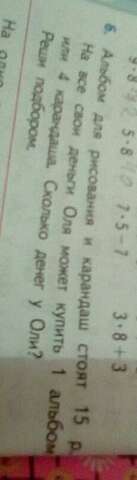 9·8 5·8 7·5−7 3·8+3
6. Альбом для рисования и карандаш стоят 15 р.
На все свои деньги Оля может купить 1 альбом
или 4 карандаша. Сколько денег у Оли?
Реши подбором.
На одно